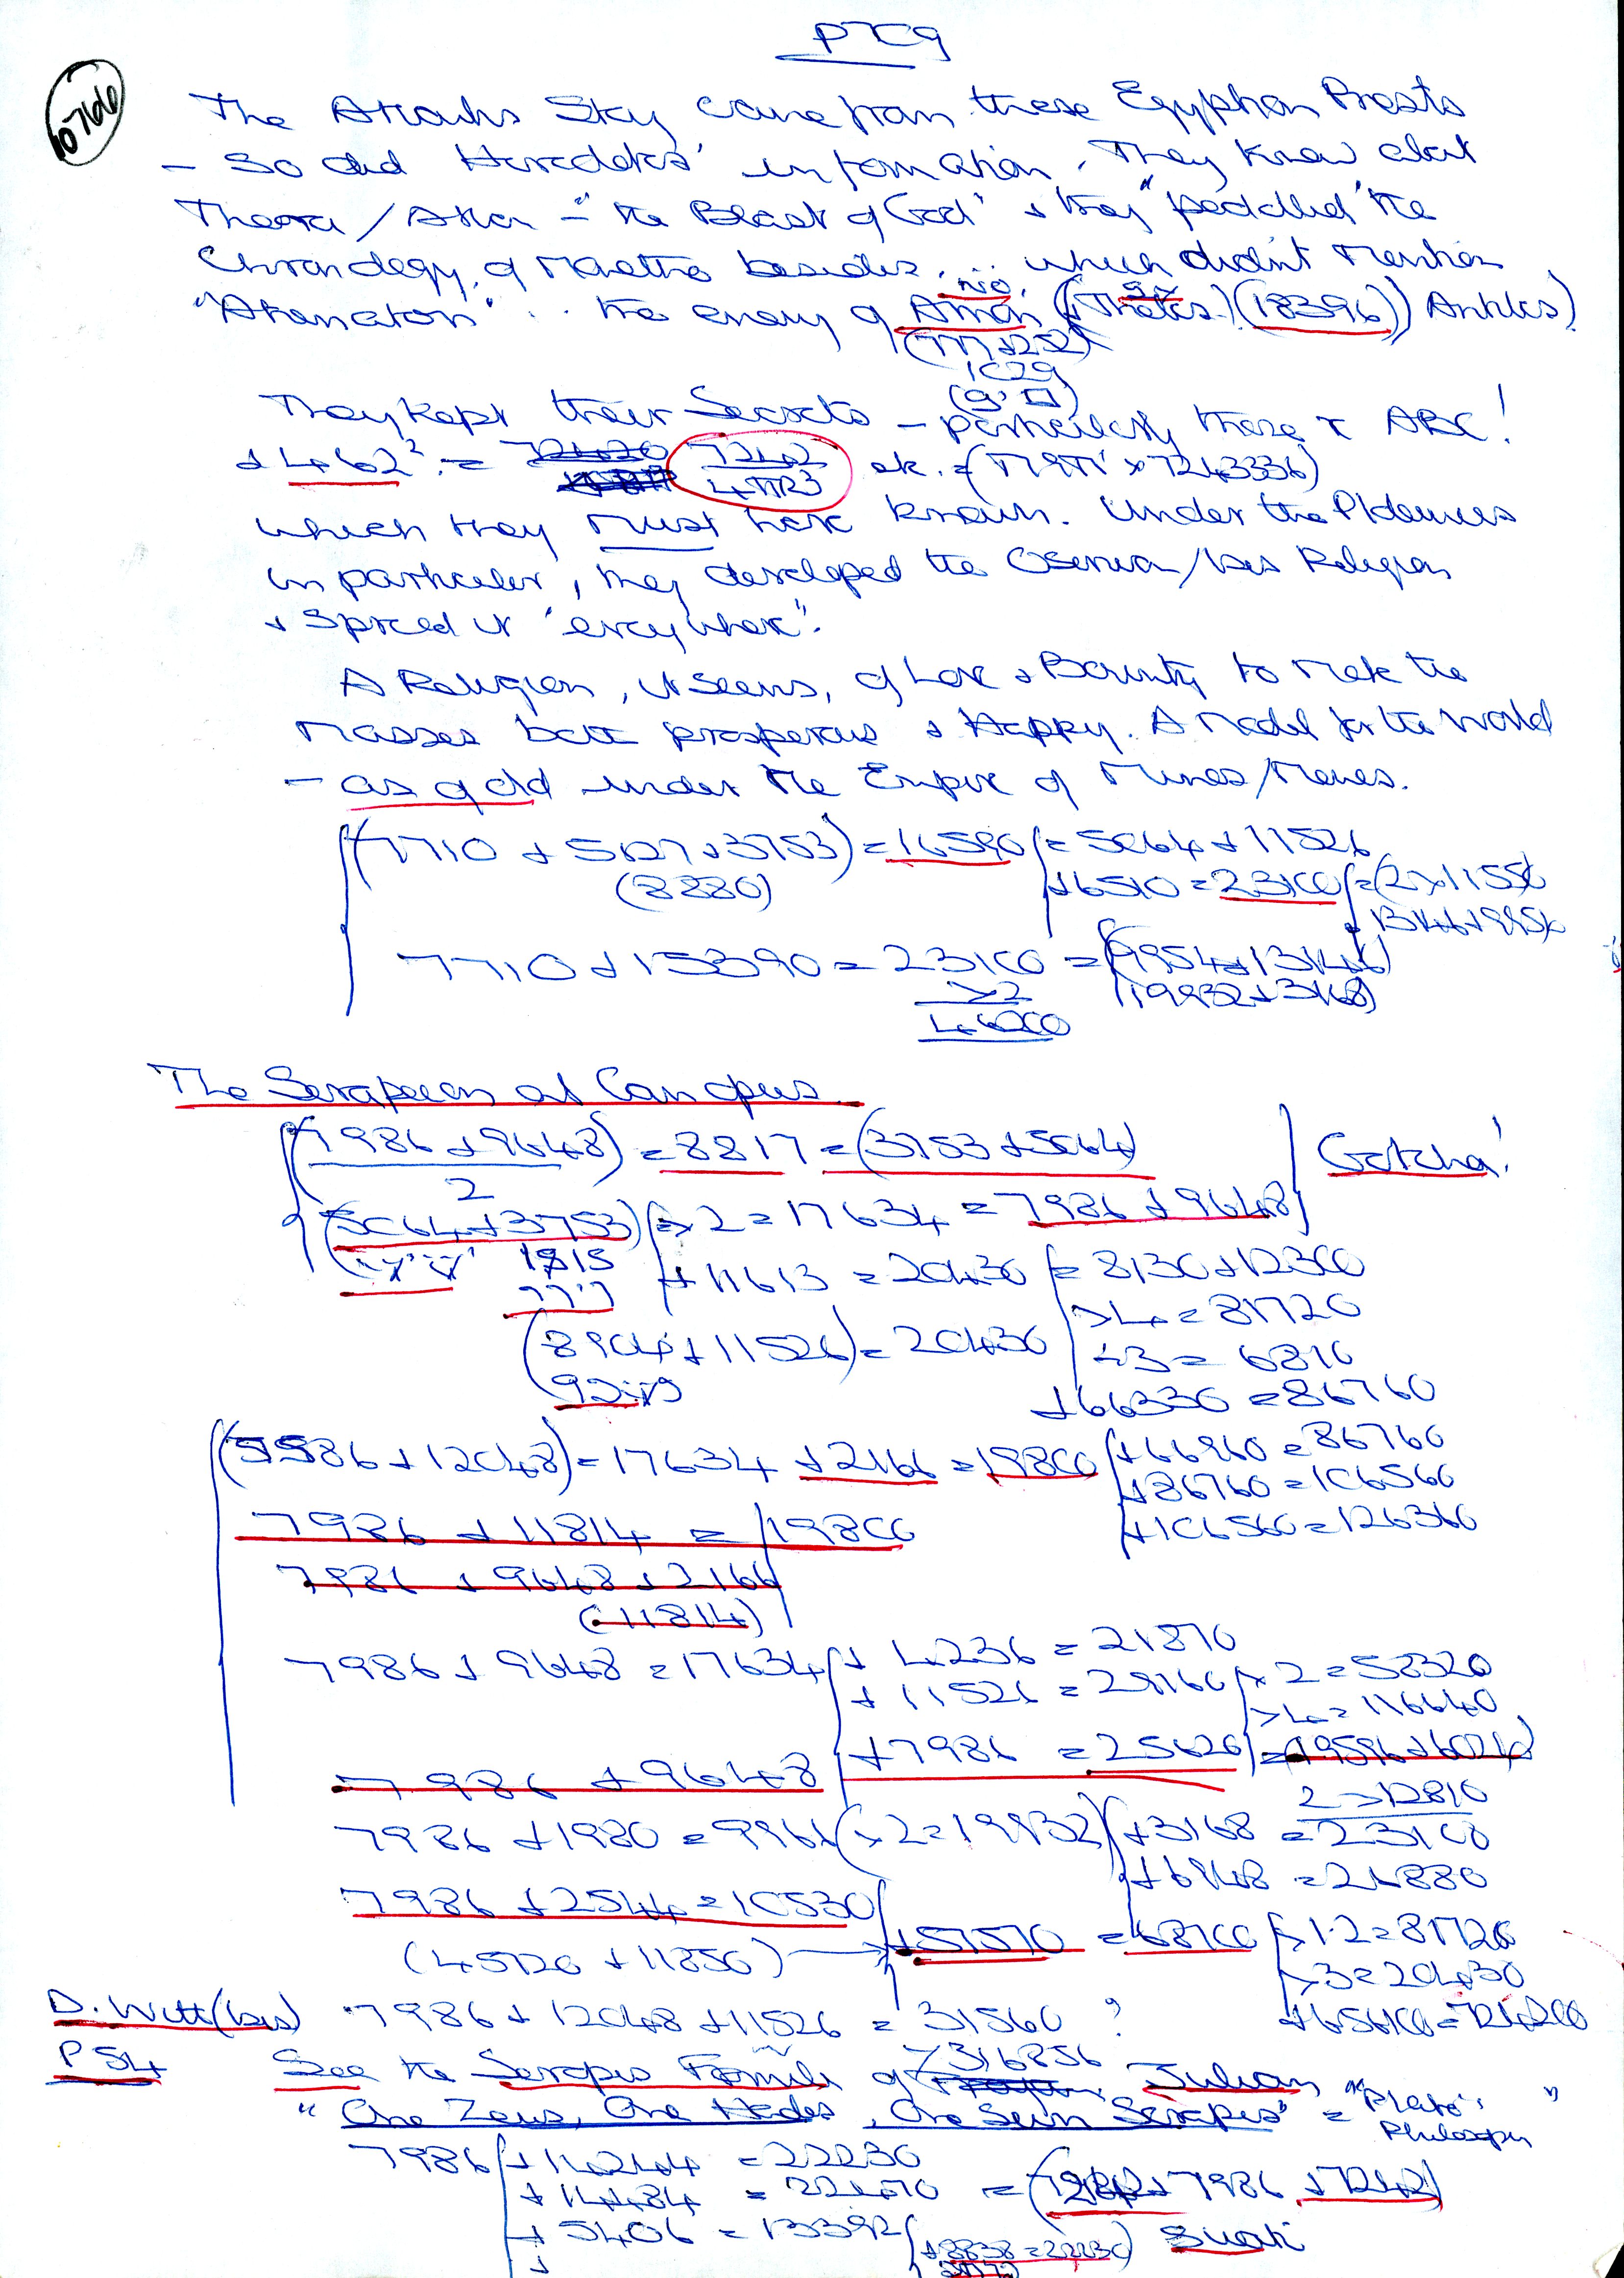 PTC9
10766
The Atlantis Story came from these Egyptian Priests
- So did Herodotus' information. They knew about
Thera / Aten - "the Blast of God" & they "peddled" the
Chronology of Manetho besides ... which didn't mention
"Akenaton" .. the enemy of Amon (18396))
(777+252)
1029
They kept their Secrets - particularly those ABC!
+ 4.62² = 7242 / 4πR3
which they must have known. Under the Ptolemies
in particular, they developed the Religion
& Spread it "everywhere".
A Religion, it seems, of Love & Bounty to make the
masses both prosperous & Happy. A Model for the World
- as of old under the Empire of Minos/Menes.
(7710 + 5127 + 3753) = 16590 = 5064 + 11526
(8880) + 6510 = 23100 = (2 × 11550
13146 + 9954
7710 + 15390 = 23100 = (9954 + 13146)
× 2 (19932 + 3168)
46200
The Serapeum at Canopus
(7986 + 9648) = 8817 = (3753 + 5064) Gotcha!
2
(5064 + 3753) × 2 = 17634 = 7986 + 9648
+ 11613 = 20430 = 8130 + 12300
× 4 = 81720
(8904 + 11526) = 20430 ÷ 3 = 6810
+ 66330 = 86760
(5586 + 12048) = 17634 + 2166 = 19800 + 66960 = 86760
+ 86760 = 106560
7986 + 11814 = 19800 + 106560 = 126360
7986 + 9648 + 2166
(11814)
7986 + 9648 = 17634 + 4236 = 21870
+ 11526 = 29160 × 2 = 58320
× 4 = 116640
7986 + 9648 + 7986 = 25620 = (19596 + 6024)
2 × 12810
7986 + 1980 = 9966 (× 2 = 19932) + 3168 = 23100
+ 6948 = 26880
7986 + 2544 = 10530
(45720 + 11850) + 57570 = 68100 × 1.2 = 81720
× 3 = 20430
D. Witt (Isis) 7986 + 12048 + 11526 = 31560 ? + 656100 = 724200
P54 See the Serapis Formula of Julian
316856
"One Zeus, One Hades, One Sun Serapis" = "Plato's Philosophy"
7986 + 14244 = 22230
+ 14484 = 22470 = ( + 7986 + 7242)
+ 5406 = 13392 + 8838 = 22230)